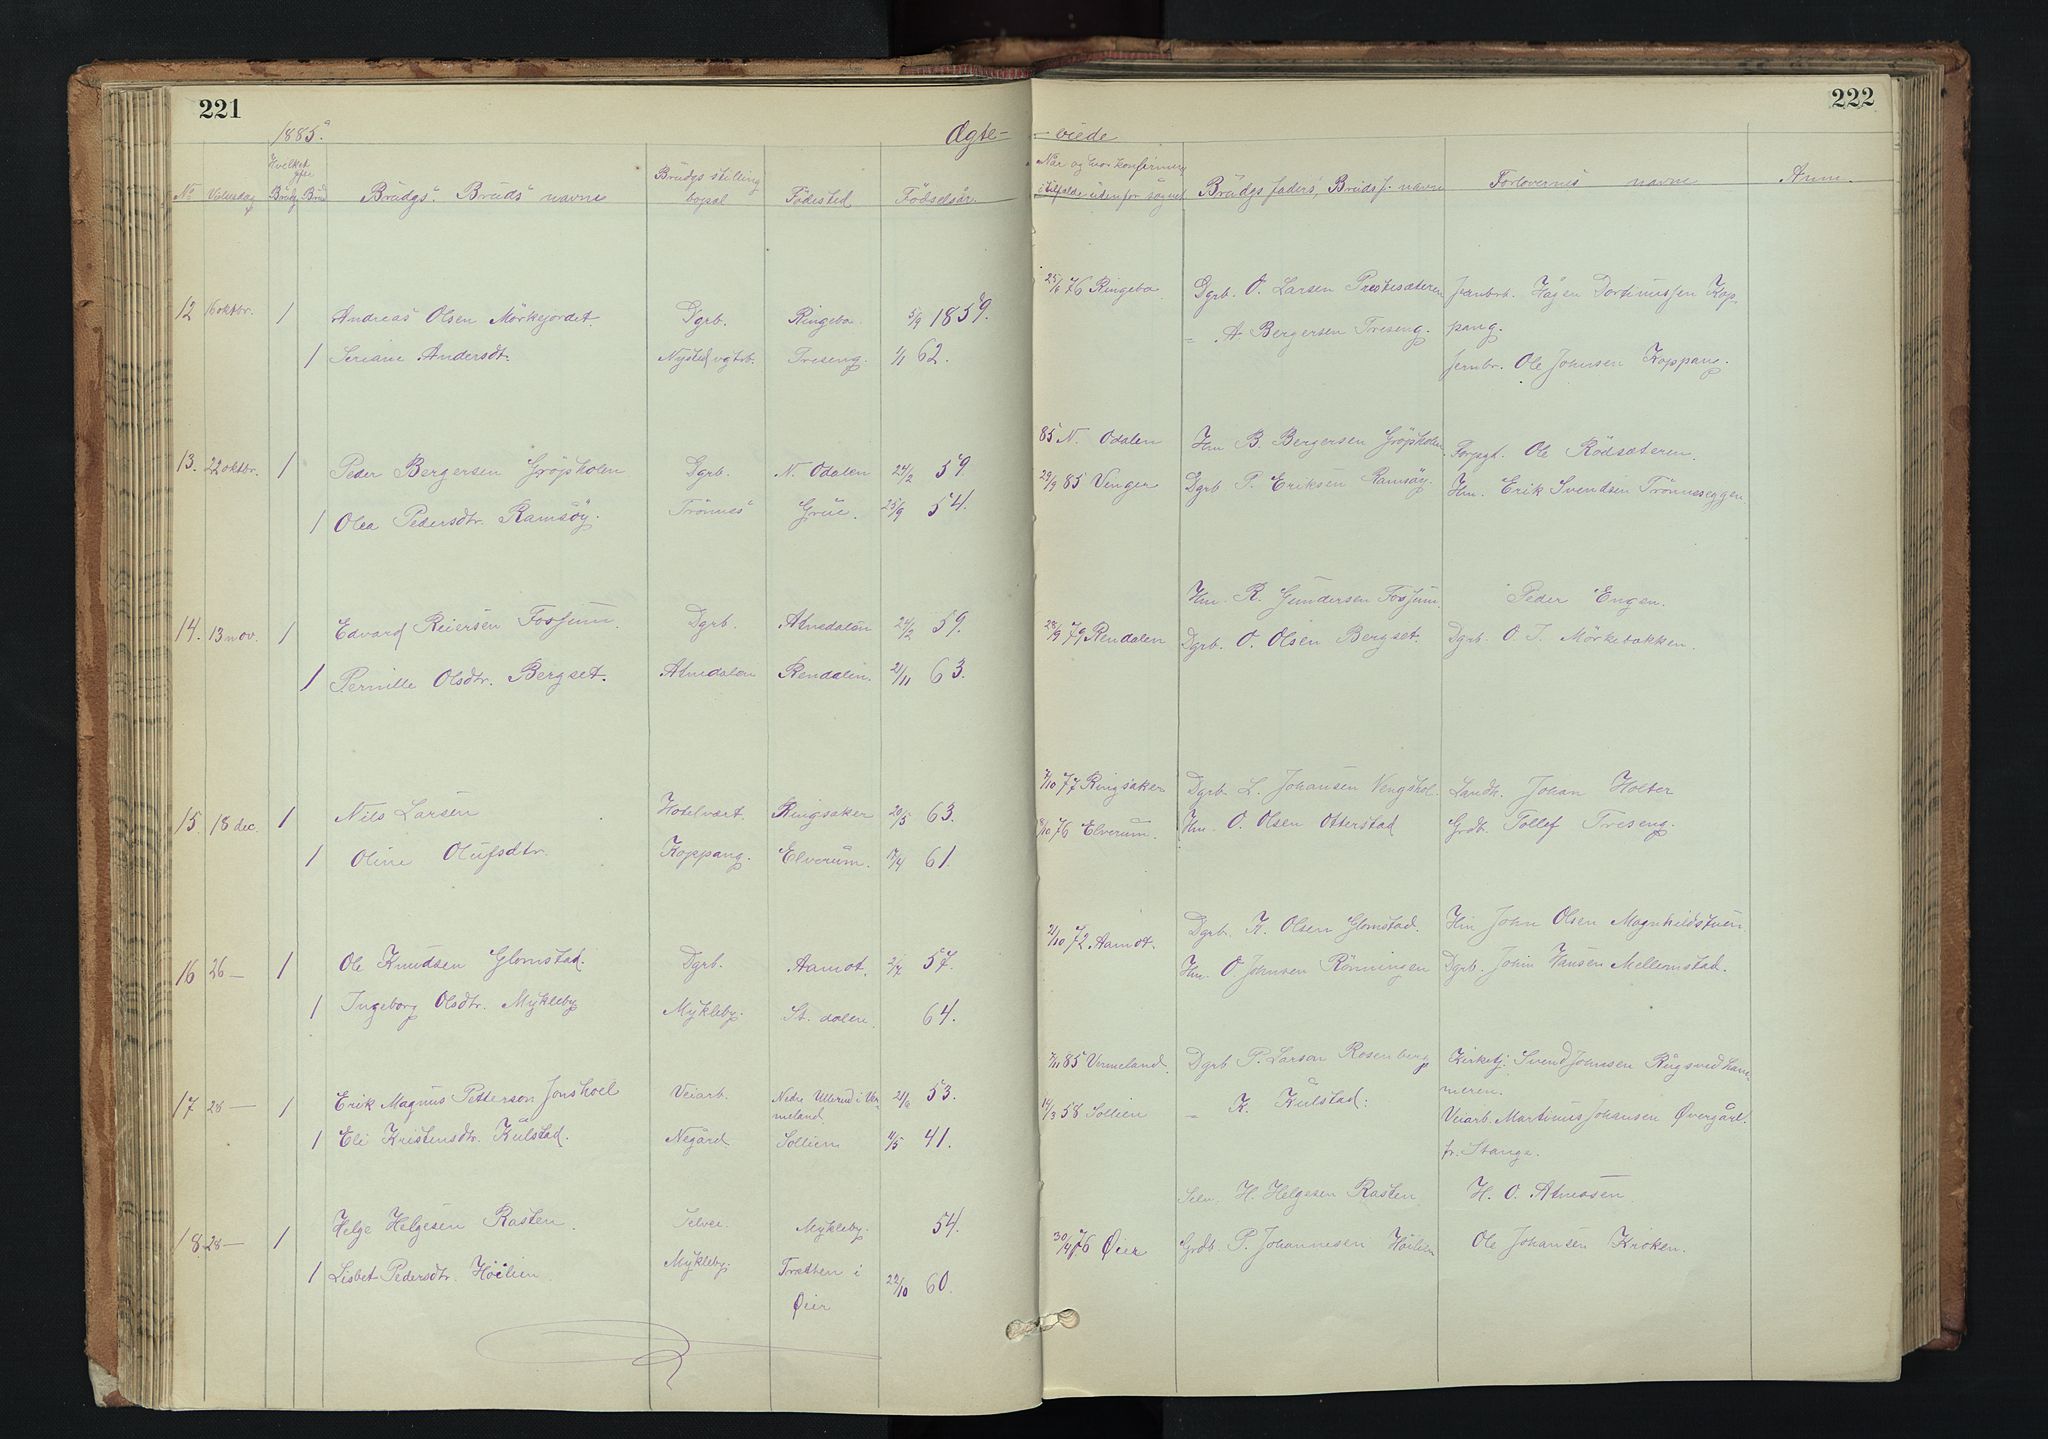 221
1885.
Ægte-
No Vielsesdag Hvilket gte Brudg Brud Brudgs. Bruds navne Brudgs stilling bopæl Födested Födselsår
12 16 oktbr. 1 Andreas Olsen Mörkejordet. Dgrb. Ringebo 5/9 1859.
1 Seriane Andersdt. Nysted vgtrb. Treseng. 1/1 62.
13. 22 oktbr. 1 Peder Bergersen Gröpholen Dgrb. N. Odalen 24/2 59.
1 Olea Pedersdtr. Ramsöy. Trönnes Grue. 25/9 54.
14. 13 nov. 1 Edvard Reiersen Fossum. Dgrb. Atnedalen 24/2 59.
1 Pernille Olsdtr. Bergset. Atnedalen Rendalen. 21/11 63.
15 18 dec. 1 Nils Larsen Hotelvært. Ringsaker 20/5 63.
1 Oline Olufsdtr. Koppang. Elverum. 17/4 61.
16 26 — 1 Ole Knudsen Glomstad. Dgrb. Aamot. 2/7 57.
1 Ingeborg Olsdtr. Mykleby Mykleby. St. dalen. 64.
17 28 — 1 Erik Magnus Petterson Jonshoel Veiarb. Nedre Ullerud i Vermeland 21/6 53.
1 Eli Kristensdtr. Kulstad. Negård Sollien 11/5 41.
18. 28 — 1 Helge Helgesen Rasten. Selvei. Mykleby. 54.
1 Lisbet Pedersdtr. Höilien Mykleby. Trætten i Øier 22/10 60.
222
viede
Når og hvor konfirmeret i tilfælde udenfor sognet Brudgs faders, Bruds f. navne Forlovernes navne Anm.
25/6 76 Ringebo Dgrb. O. Larsen Prestesæteren Jernbrb. Hågen Dortinussen Kop-
" A Bergersen Treseng. pang.
Jernbr. Ole Johnsen Koppang.
85 N. Odalen Hm B. Bergersen Gröpholen Forpgt. Ole Rödsæteren.
29/9 85 Vinger Dgrb P. Eriksen Ramsöy. Hm. Erik Svendsen Trönneseggen
Hm. R. Gundersen Fossum. Peder Engen.
28/9 79 Rendalen Dgrb. O. Olsen Bergset. Dgrb. O. T. Mörkebakken.
7/10 77 Ringsaker Dgrb. L. Johansen Vengshol. Landh. Johan Holter
8/10 76 Elverum. Hm. O. Olsen Otterstad Grdb. Tollef Treseng.
21/10 72 Aamot. Dgrb. K. Olsen Glomstad. Hm John Olsen Magnhildstuen
Hm. O. Johnsen Rönningen Dgrb. John Hansen Mellemstad.
7/11 85 Vermeland. Dgrb P. Larson Rosenberg Kirketj. Svend Johnsen Rugsvedham-
meren.
14/3 58 Sollien " K. Kulstad. Veiarb. Martinius Johansen Övergårl.
fr. Stange.
Selv. H. Helgesen Rasten H. O. Atneosen
30/4 76 Øier Grdb. P. Johannesen Höilien Ole Johansen Kroken.